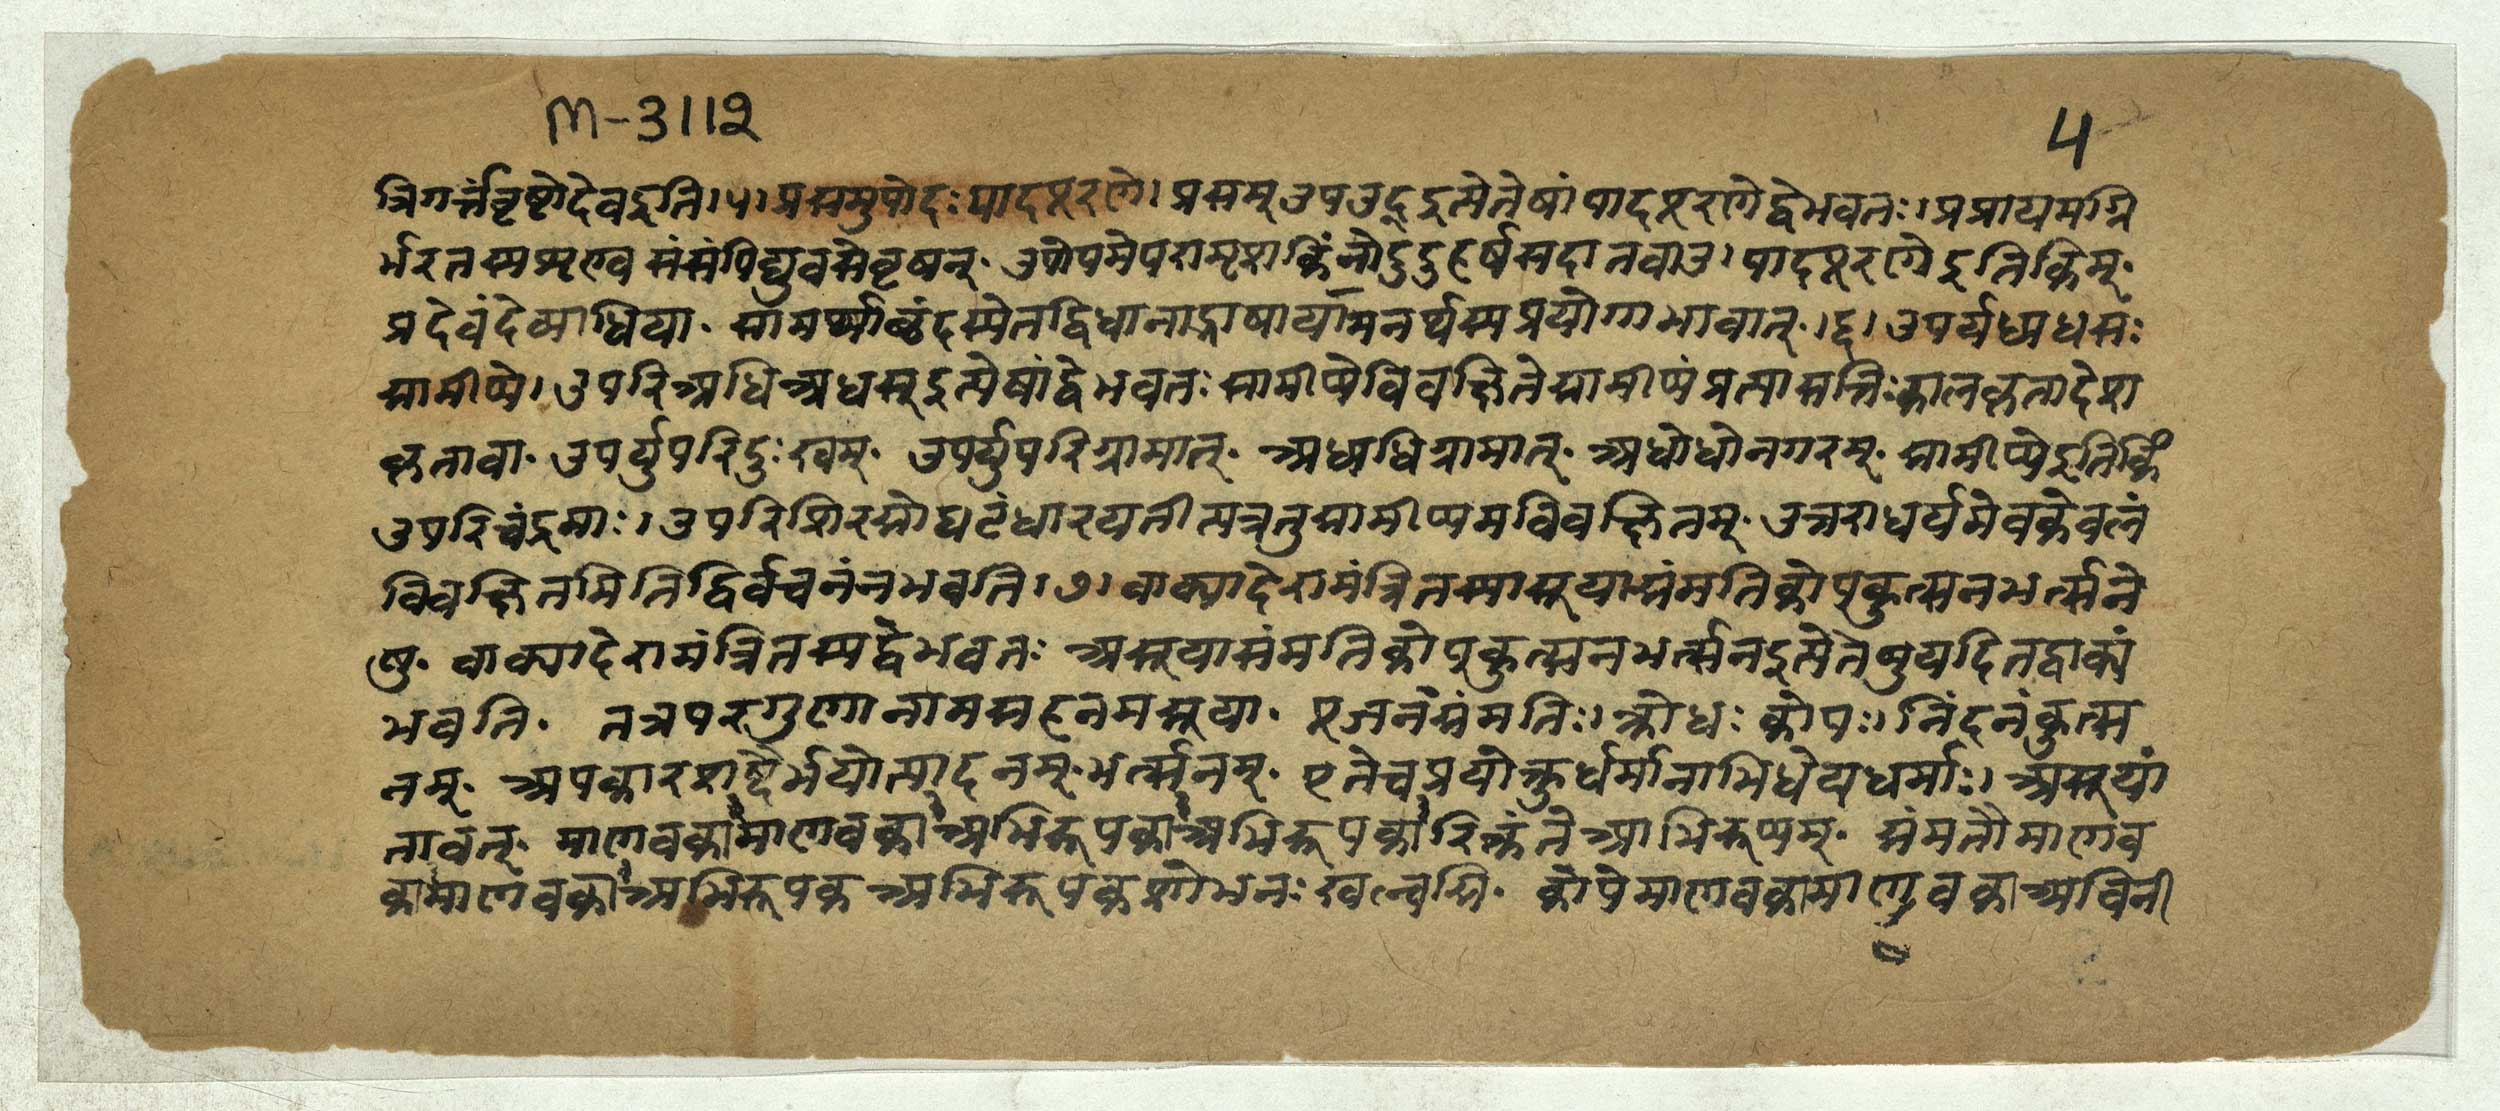 M-3112
4
त्रिगर्त्तंवृष्टोदेवइति।५।प्रसमुपोदःपादपूरणे।प्रसम्उपउद्इत्येतेषांपादपूरणेद्वेभवतः।प्रप्रायमग्नि
र्भरतस्यशृण्वसंसंमिद्युवसेवृषन्.उपोपमेपरामृशकिंनोदुदुहर्षसदातवाउ।पादपूरणेइतिकिम्.
प्रदेवंदेव्याधिया.सामर्थ्याच्छंदस्येतद्विधानाद्भाषायामनर्थस्यप्रयोगाभावात्।६।उपर्यध्यधसः
सामीप्ये।उपरिअधिअधस्इत्येषांद्वेभवतःसामीप्येविवक्षितेसामीप्यंप्रत्यासत्तिःकालकृतादेश
कृतावा.उपर्युपरिदुःखम्.उपर्युपरिग्रामात्.अध्यधिग्रामात्.अधोधोनगरम्.सामीप्येइतिकिं
उपरिचंद्रमाः।उपरिशिरसोघटंधारयतीत्यत्रतुसामीप्यमविवक्षितम्.उत्तराधर्यमेवकेवलं
विवक्षितमितिद्विर्वचनंनभवति।७।वाक्यादेरामंत्रितस्यासूयासंमतिकोपकुत्सनभर्त्सने
षु.वाक्यादेरामंत्रितस्यद्वेभवतःअसूयासंमतिकोपकुत्सनभर्त्सनइत्येतेषुयदितद्वाक्यं
भवति.तत्रपरगुणानामसहनमसूया.पूजनंसंमतिः।क्रोधःकोपः।निंदनंकुत्स
नम्.अपकारशब्दैर्भयोत्पादनम्.भर्त्सनम्.एतेचप्रयोक्तुर्धर्मानाभिधेयधर्माः।असूयां
तावत्.माणवका३माणवकाअभिरूपका३अभिरूपकारिक्तंतेआभिरूप्यम्.संमतौमाणव
का३माणवकाअभिरूपकअभिरूपकशोभनःखल्वसि.कोपेमाणवकामाणवकाअविनी